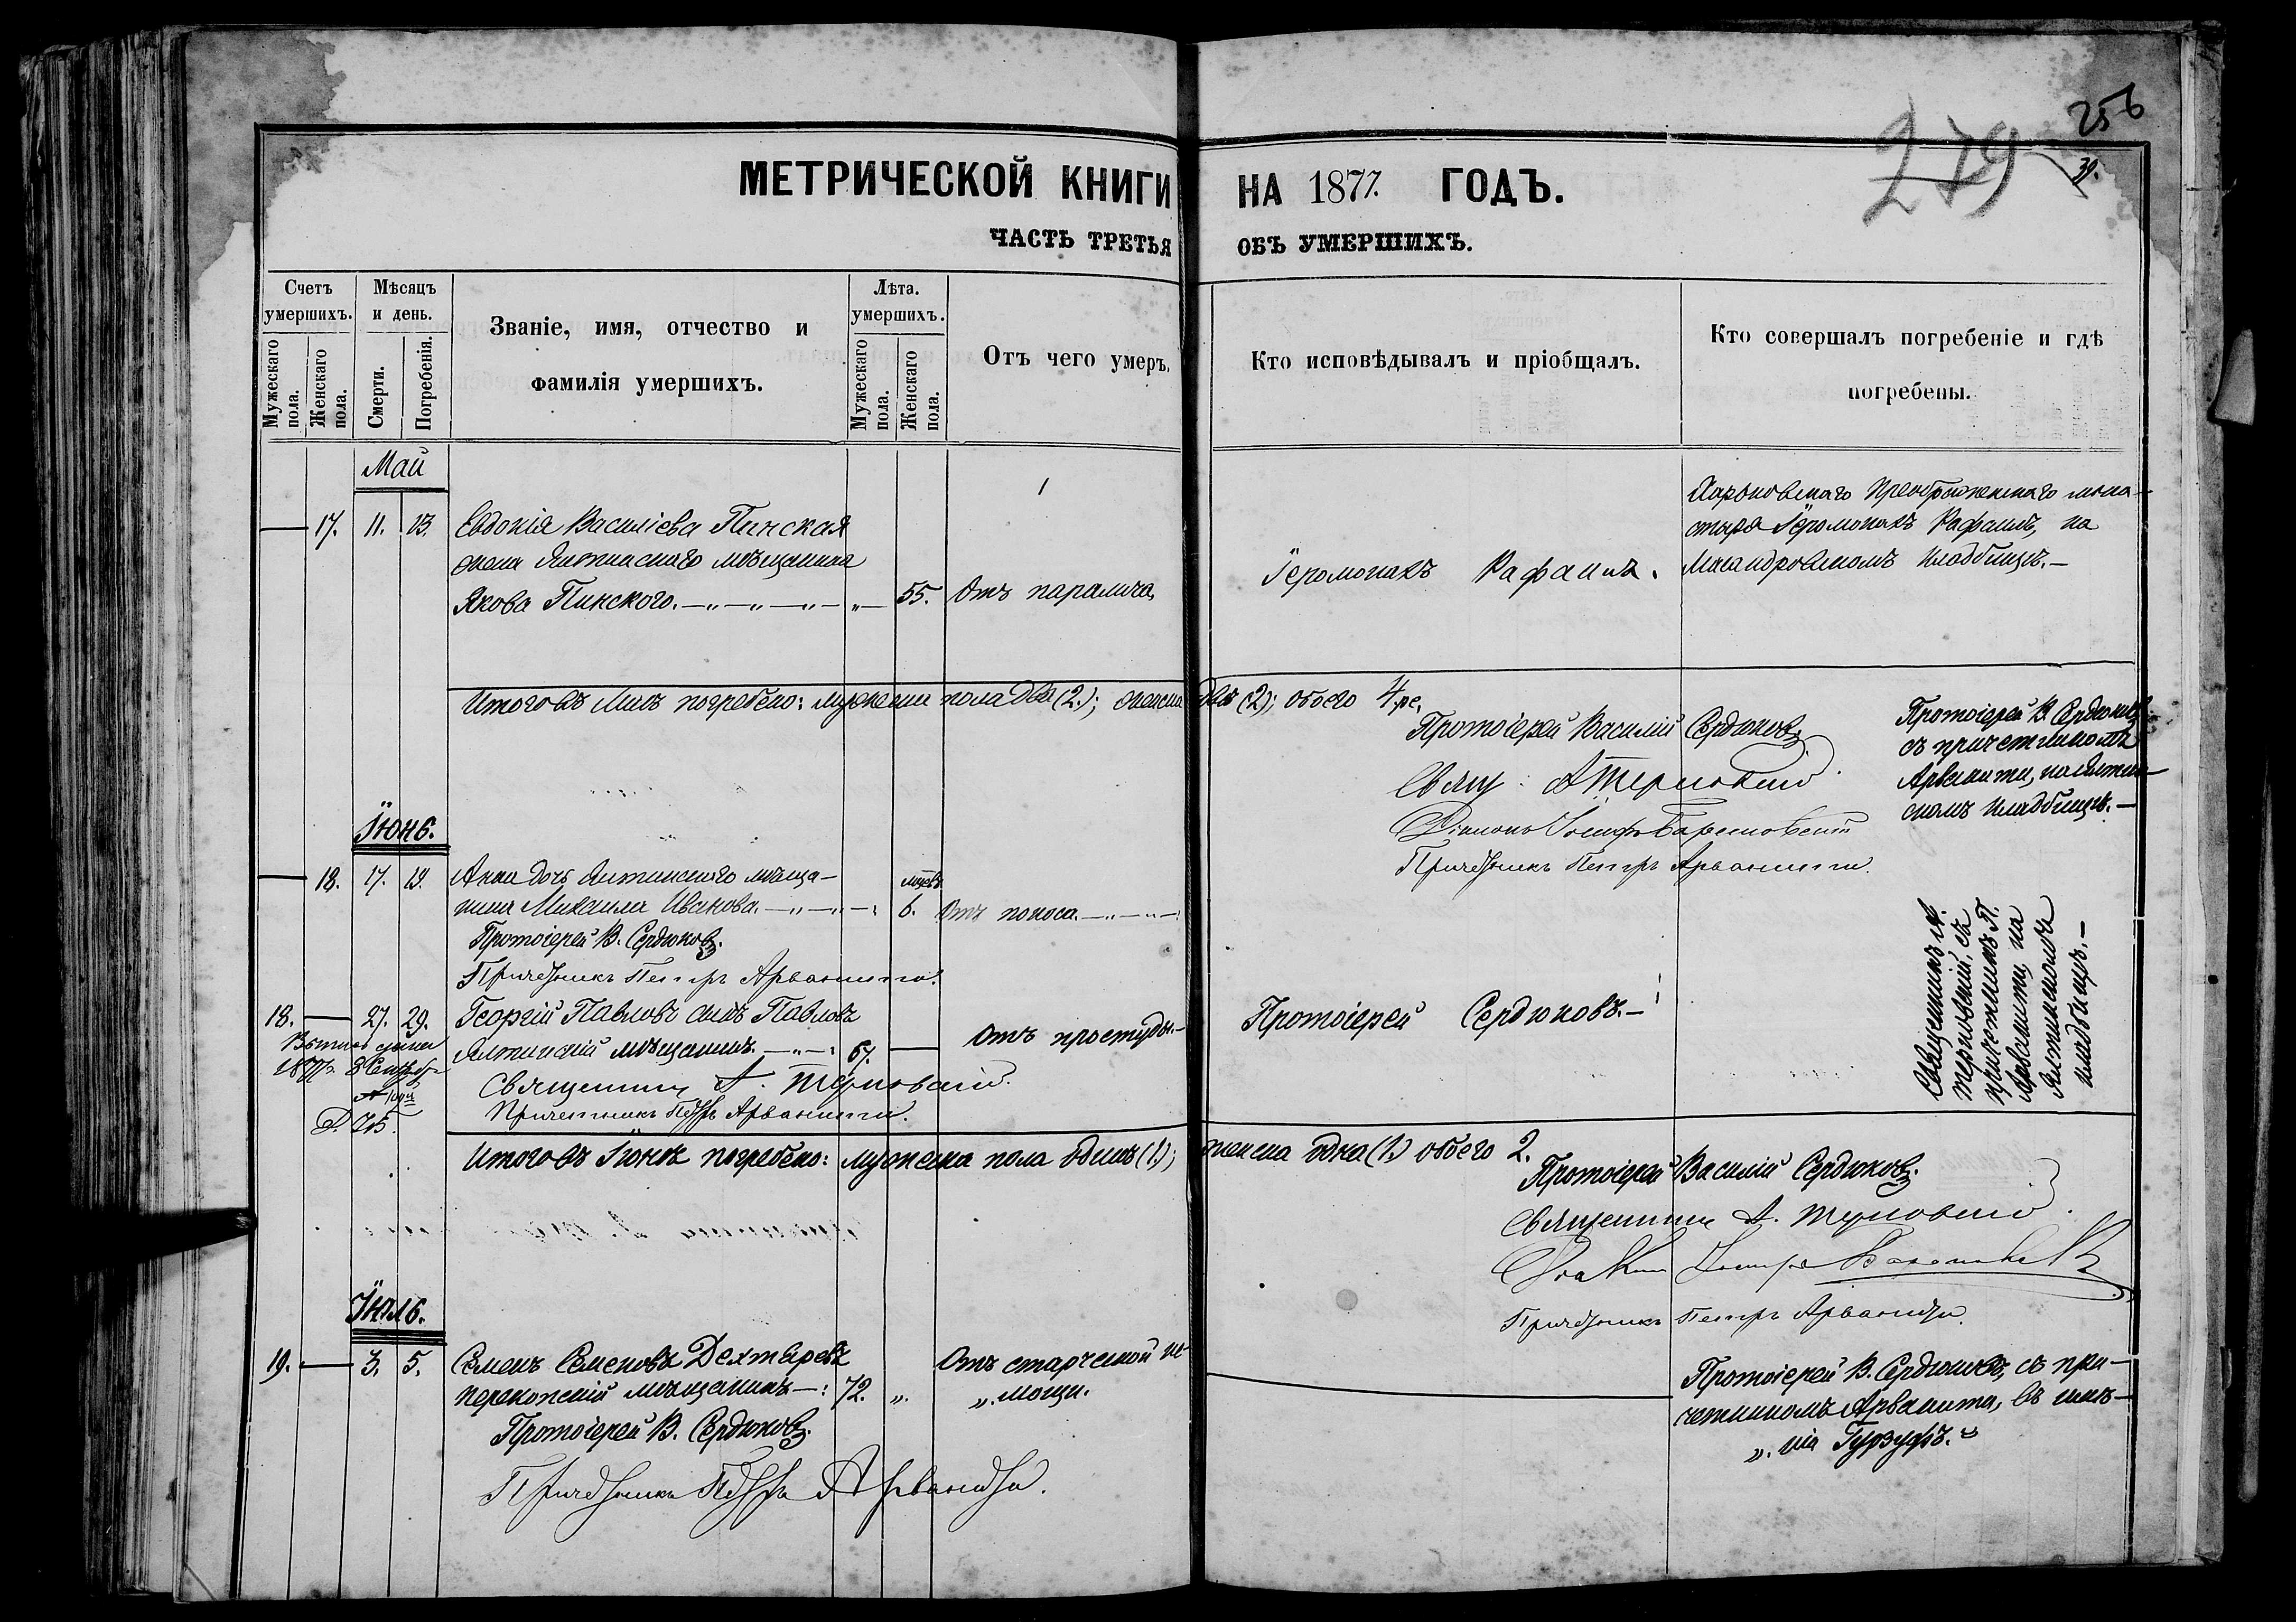 256
279
39.
МЕТРИЧЕСКОЙ КНИГИ НА 1877. ГОДЪ.
ЧАСТЬ ТРЕТЬЯ ОБЪ УМЕРШИХЪ.
Счетъ умершихъ.
Мужескаго пола.
Женскаго пола.
Мѣсяцъ и день.
Смерти.
Погребенія.
Званіе, имя, отчество и
фамилія умершихъ.
Лѣта. умершихъ.
Мужескаго пола.
Женскаго пола.
Отъ чего умеръ.
Кто исповѣдывалъ и пріобщалъ.
Кто совершалъ погребеніе и гдѣ
погребены.
Май
17. 11. 13. Евдокія Василіева Пинская
жена Ялтинскаго мѣщанина
Якова Пинского. 55. Отъ паралича,
Іеромонахъ Рафаилъ.
Харьковскаго Преображенскаго мона-
стыря Іеромонахъ Рафаилъ, на
Массандровскомъ кладбищѣ.
Итого въ Маѣ погребено: мужеска пола два (2.); женска двѣ (2); обоего 4-ре.
Протоіерей Василій Сердюковъ.
Свящ. А Терновскій
Діаконъ Іосифъ
Причетникъ Петръ Арванити.
Протоіерей В. Сердюковъ
съ причетникомъ
Арванити, на Ялтин-
скомъ кладбищѣ.
Іюнь.
18. 17. 19. Анна дочь Ялтинскаго мѣща-
нина Михаила Иванова. мѣсяц. 6. Отъ поноса.
Протоіерей В. Сердюковъ.
Причетникъ Петръ Арванити.
18. 27. 29. Георгій Павловъ сынъ Павловъ
Ялтинскій мѣщанинъ. 67. Отъ простуды.
Священникъ А. Терновскій.
Причетникъ Петръ Арванити.
1877 г.
Протоіерей Сердюковъ.
Священникъ А.
Терновскій, съ
причетникомъ П.
Арванити, на
Ялтинскомъ
кладбищѣ.
Итого въ Іюнѣ погребено: мужеска пола одинъ (1.); женска одна (1.) обоего 2.
Протоіерей Василій Сердюковъ.
Священникъ А. Терновскій.
Діаконъ
Причетникъ Петръ Арванити.
Іюль.
19. 3. 5. Семенъ Семеновъ Дехтяревъ
Перекопскій мѣщанинъ 72. Отъ старческой не-
„мощи.
Протоіерей В. Сердюковъ.
Причетникъ Петръ Арванити.
Протоіерей В. Сердюковъ, съ при-
четникомъ Арванити, въ имѣ-
„ніи Гурзуфъ.